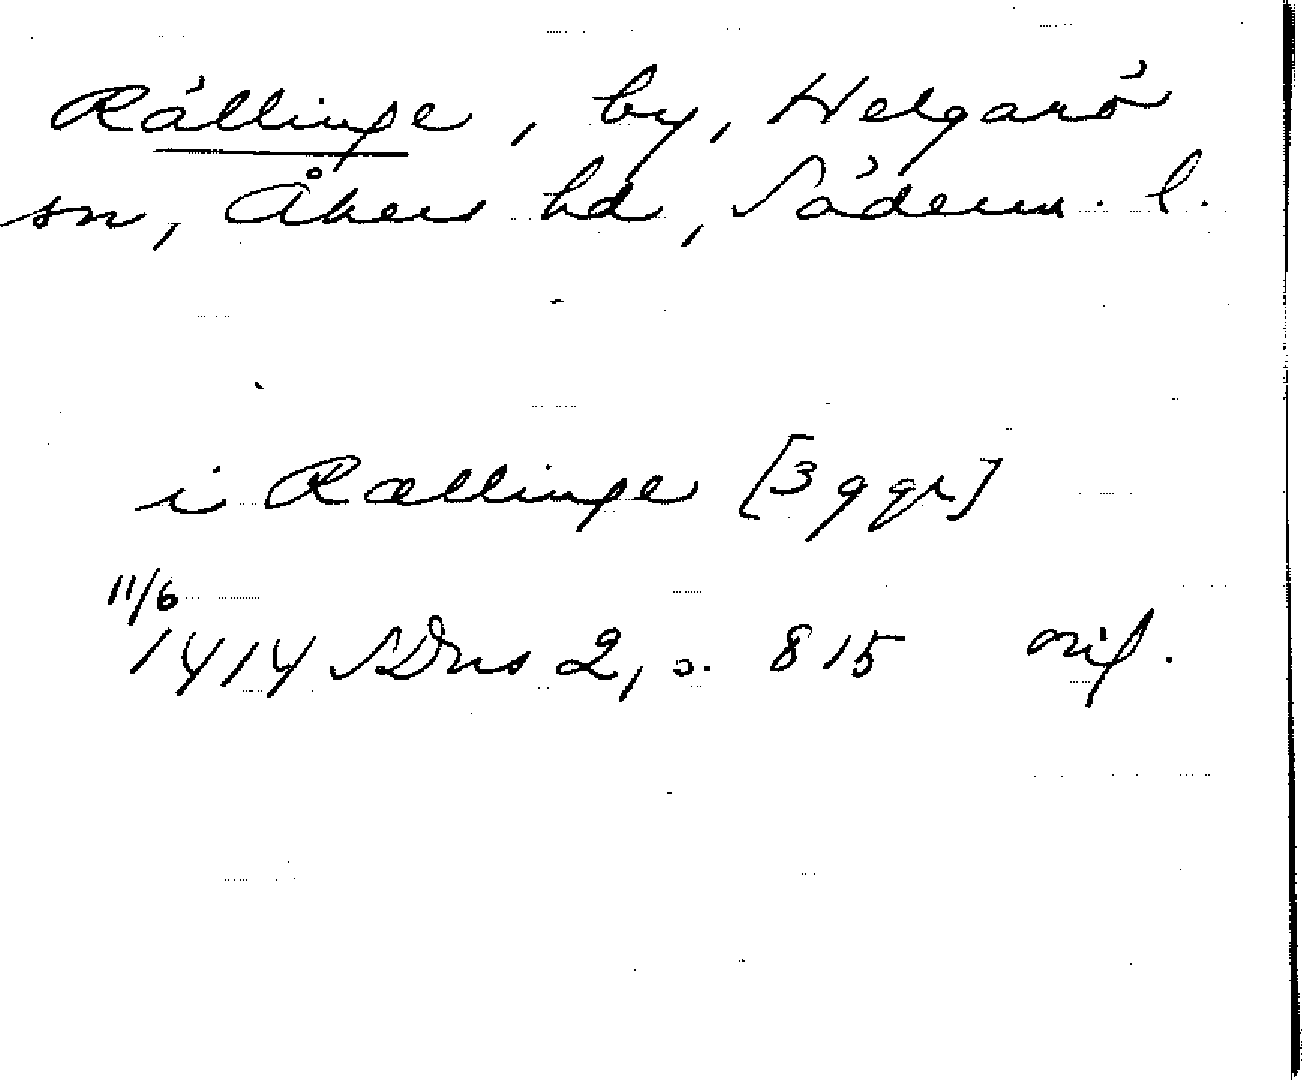 Rällinge, by, Helgarö
sn, Åkers hd, Söderm. l.
i Rællinge [3 ggr]
11/6
1414 SDns 2, s. 815 nif.